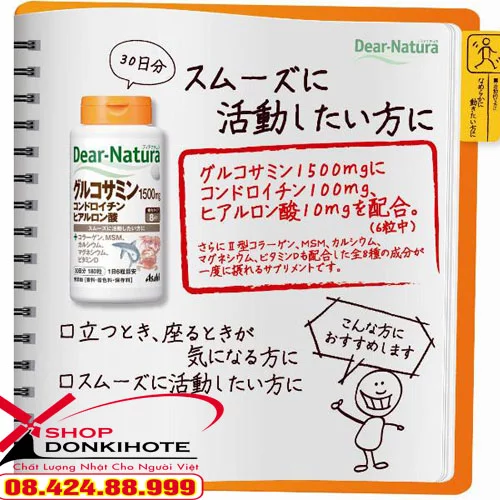 Dear-Natura
30日分
スムーズに
活動したい方に
なめらかに
動きたい方に
グルコサミン1500mgに
コンドロイチン100mg、
ヒアルロン酸10mgを配合。
(6粒中)
さらにⅡ型コラーゲン、MSM、カルシウム、
マグネシウム、ビタミンDも配合した全8種の成分が
一度に摂れるサプリメントです。
Dear-Natura
グルコサミン 1500mg
コンドロイチン
ヒアルロン酸
スムーズに活動したい方に
+コラーゲン、MSM、
カルシウム、
マグネシウム、
ビタミンD
30日分 180粒 1日6粒目安
無添加(香料・着色料・保存料)
Asahi
□立つとき、座るときが
気になる方に
□スムーズに活動したい方に
こんな方に
おすすめします
SHOP
DONKIHOTE
Chất Lượng Nhật Cho Người Việt
08.424.88.999